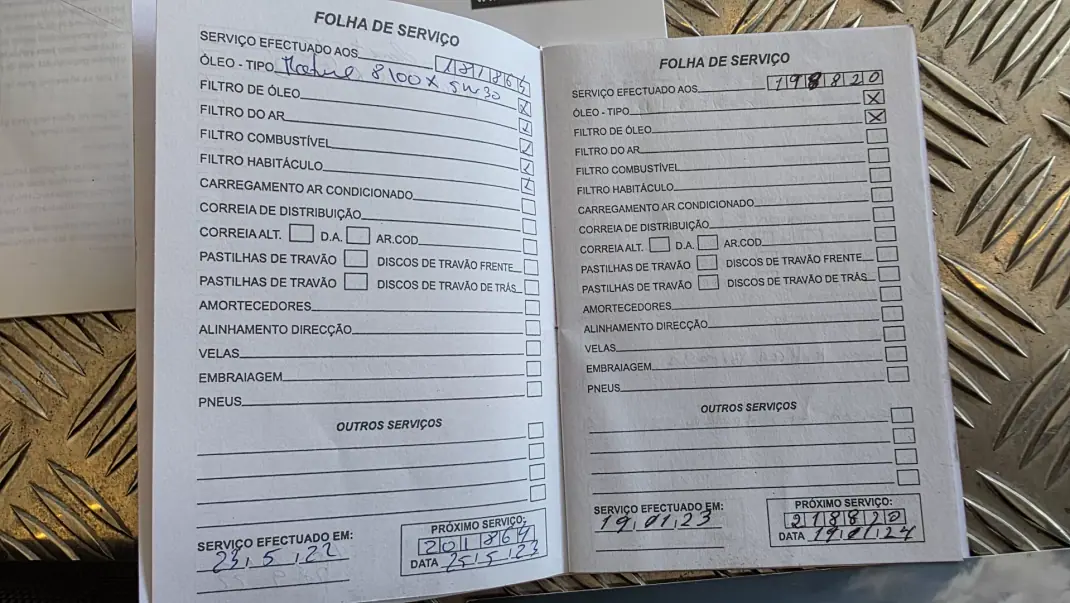 FOLHA DE SERVIÇO
SERVIÇO EFECTUADO AOS 181864
ÓLEO - TIPO 8100 X 5W30
FILTRO DE ÓLEO
FILTRO DO AR
FILTRO COMBUSTÍVEL
FILTRO HABITÁCULO
CARREGAMENTO AR CONDICIONADO
CORREIA DE DISTRIBUIÇÃO
CORREIA ALT. D.A. AR.COD
PASTILHAS DE TRAVÃO DISCOS DE TRAVÃO FRENTE
PASTILHAS DE TRAVÃO DISCOS DE TRAVÃO DE TRÁS
AMORTECEDORES
ALINHAMENTO DIRECÇÃO
VELAS
EMBRAIAGEM
PNEUS
OUTROS SERVIÇOS
SERVIÇO EFECTUADO EM:
23,5,22
PRÓXIMO SERVIÇO:
201864
DATA 25,5,23
FOLHA DE SERVIÇO
SERVIÇO EFECTUADO AOS 198820
ÓLEO - TIPO
FILTRO DE ÓLEO
FILTRO DO AR
FILTRO COMBUSTÍVEL
FILTRO HABITÁCULO
CARREGAMENTO AR CONDICIONADO
CORREIA DE DISTRIBUIÇÃO
CORREIA ALT. D.A. AR.COD
PASTILHAS DE TRAVÃO DISCOS DE TRAVÃO FRENTE
PASTILHAS DE TRAVÃO DISCOS DE TRAVÃO DE TRÁS
AMORTECEDORES
ALINHAMENTO DIRECÇÃO
VELAS
EMBRAIAGEM
PNEUS
OUTROS SERVIÇOS
SERVIÇO EFECTUADO EM:
19,01,23
PRÓXIMO SERVIÇO:
218820
DATA 19,01,24